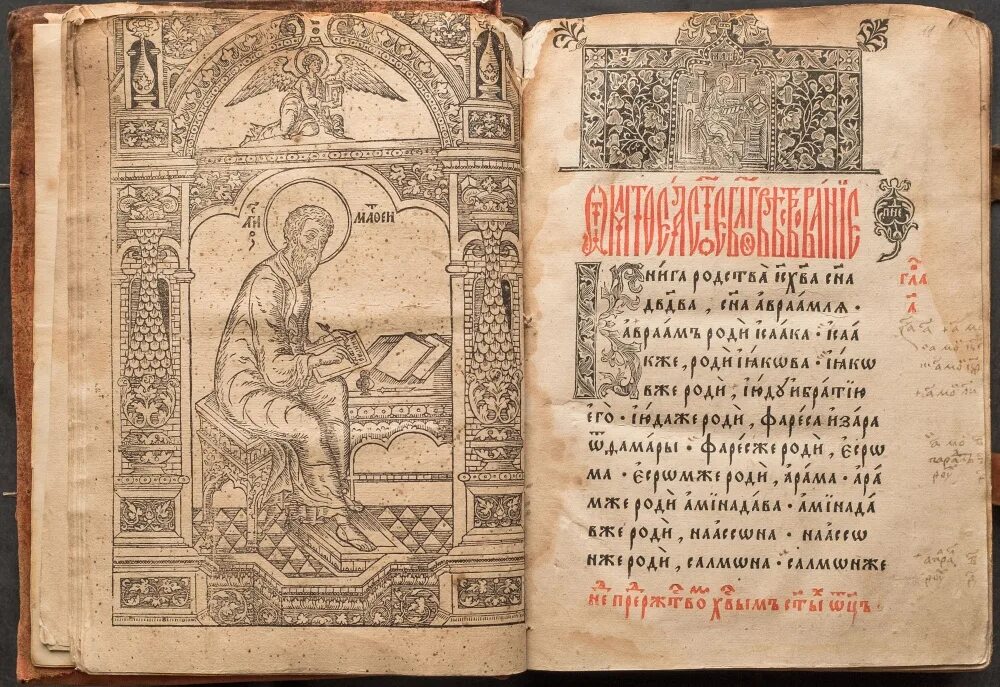 а҃гиос
матѳеи
ѿ маѳеа ст҃ое бл҃говѣствованїе
Книга родства і҃с х҃ва сн҃а
дв҃два , сн҃а авраамлѧ ·
авраамъ родѝ ісаа́ка · ісаа́
кже , родѝ іа́кѡва · іа́кѡ
вже родѝ , ію́дꙋ и҆ бра́тїю
є҆го̀ · ію́да же родѝ , фаре́са и҆ за́ра
ѿ ѳама́ры · фаре́сже родѝ , є҆срѡ
ма · є҆срѡмже родѝ , ара́ма · ара́
мже родѝ амїнада́ва · амїнада́
вже родѝ , наассѡна · наассѡ
нже родѝ , салмѡна · салмѡнже
гл҃а
а҃
не҃д пре́д рж҃твомъ х҃вымъ ст҃ы́х ѿц҃ъ ·